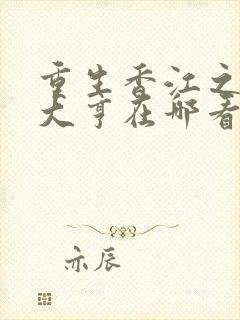 重生香江之
大亨在那看
亦辰